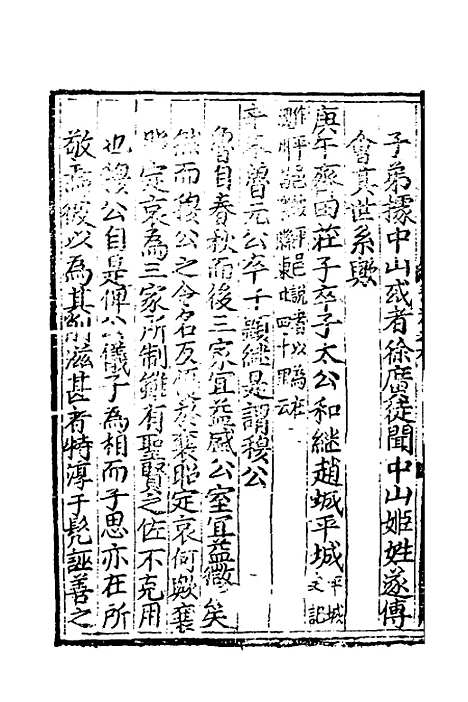 子弟據中山或者徐廣徒聞中山姬姓遂傅
會其世系歟
庚午齊田莊子卒子太公和繼趙城平城平城史記
作平邑徐平邑說者以為在東北四十里云
辛未魯元公卒子顯繼是謂穆公
魯自春秋而後三家宜益盛公室宜益微矣
然而穆公之令名反於襄昭定哀何歟襄
昭定哀為三家所制雖有聖賢之佐不克用
也穆公自是俾公儀子為相而子思亦在所
敬焉彼以為其削滋甚者特淳于髡誣善之